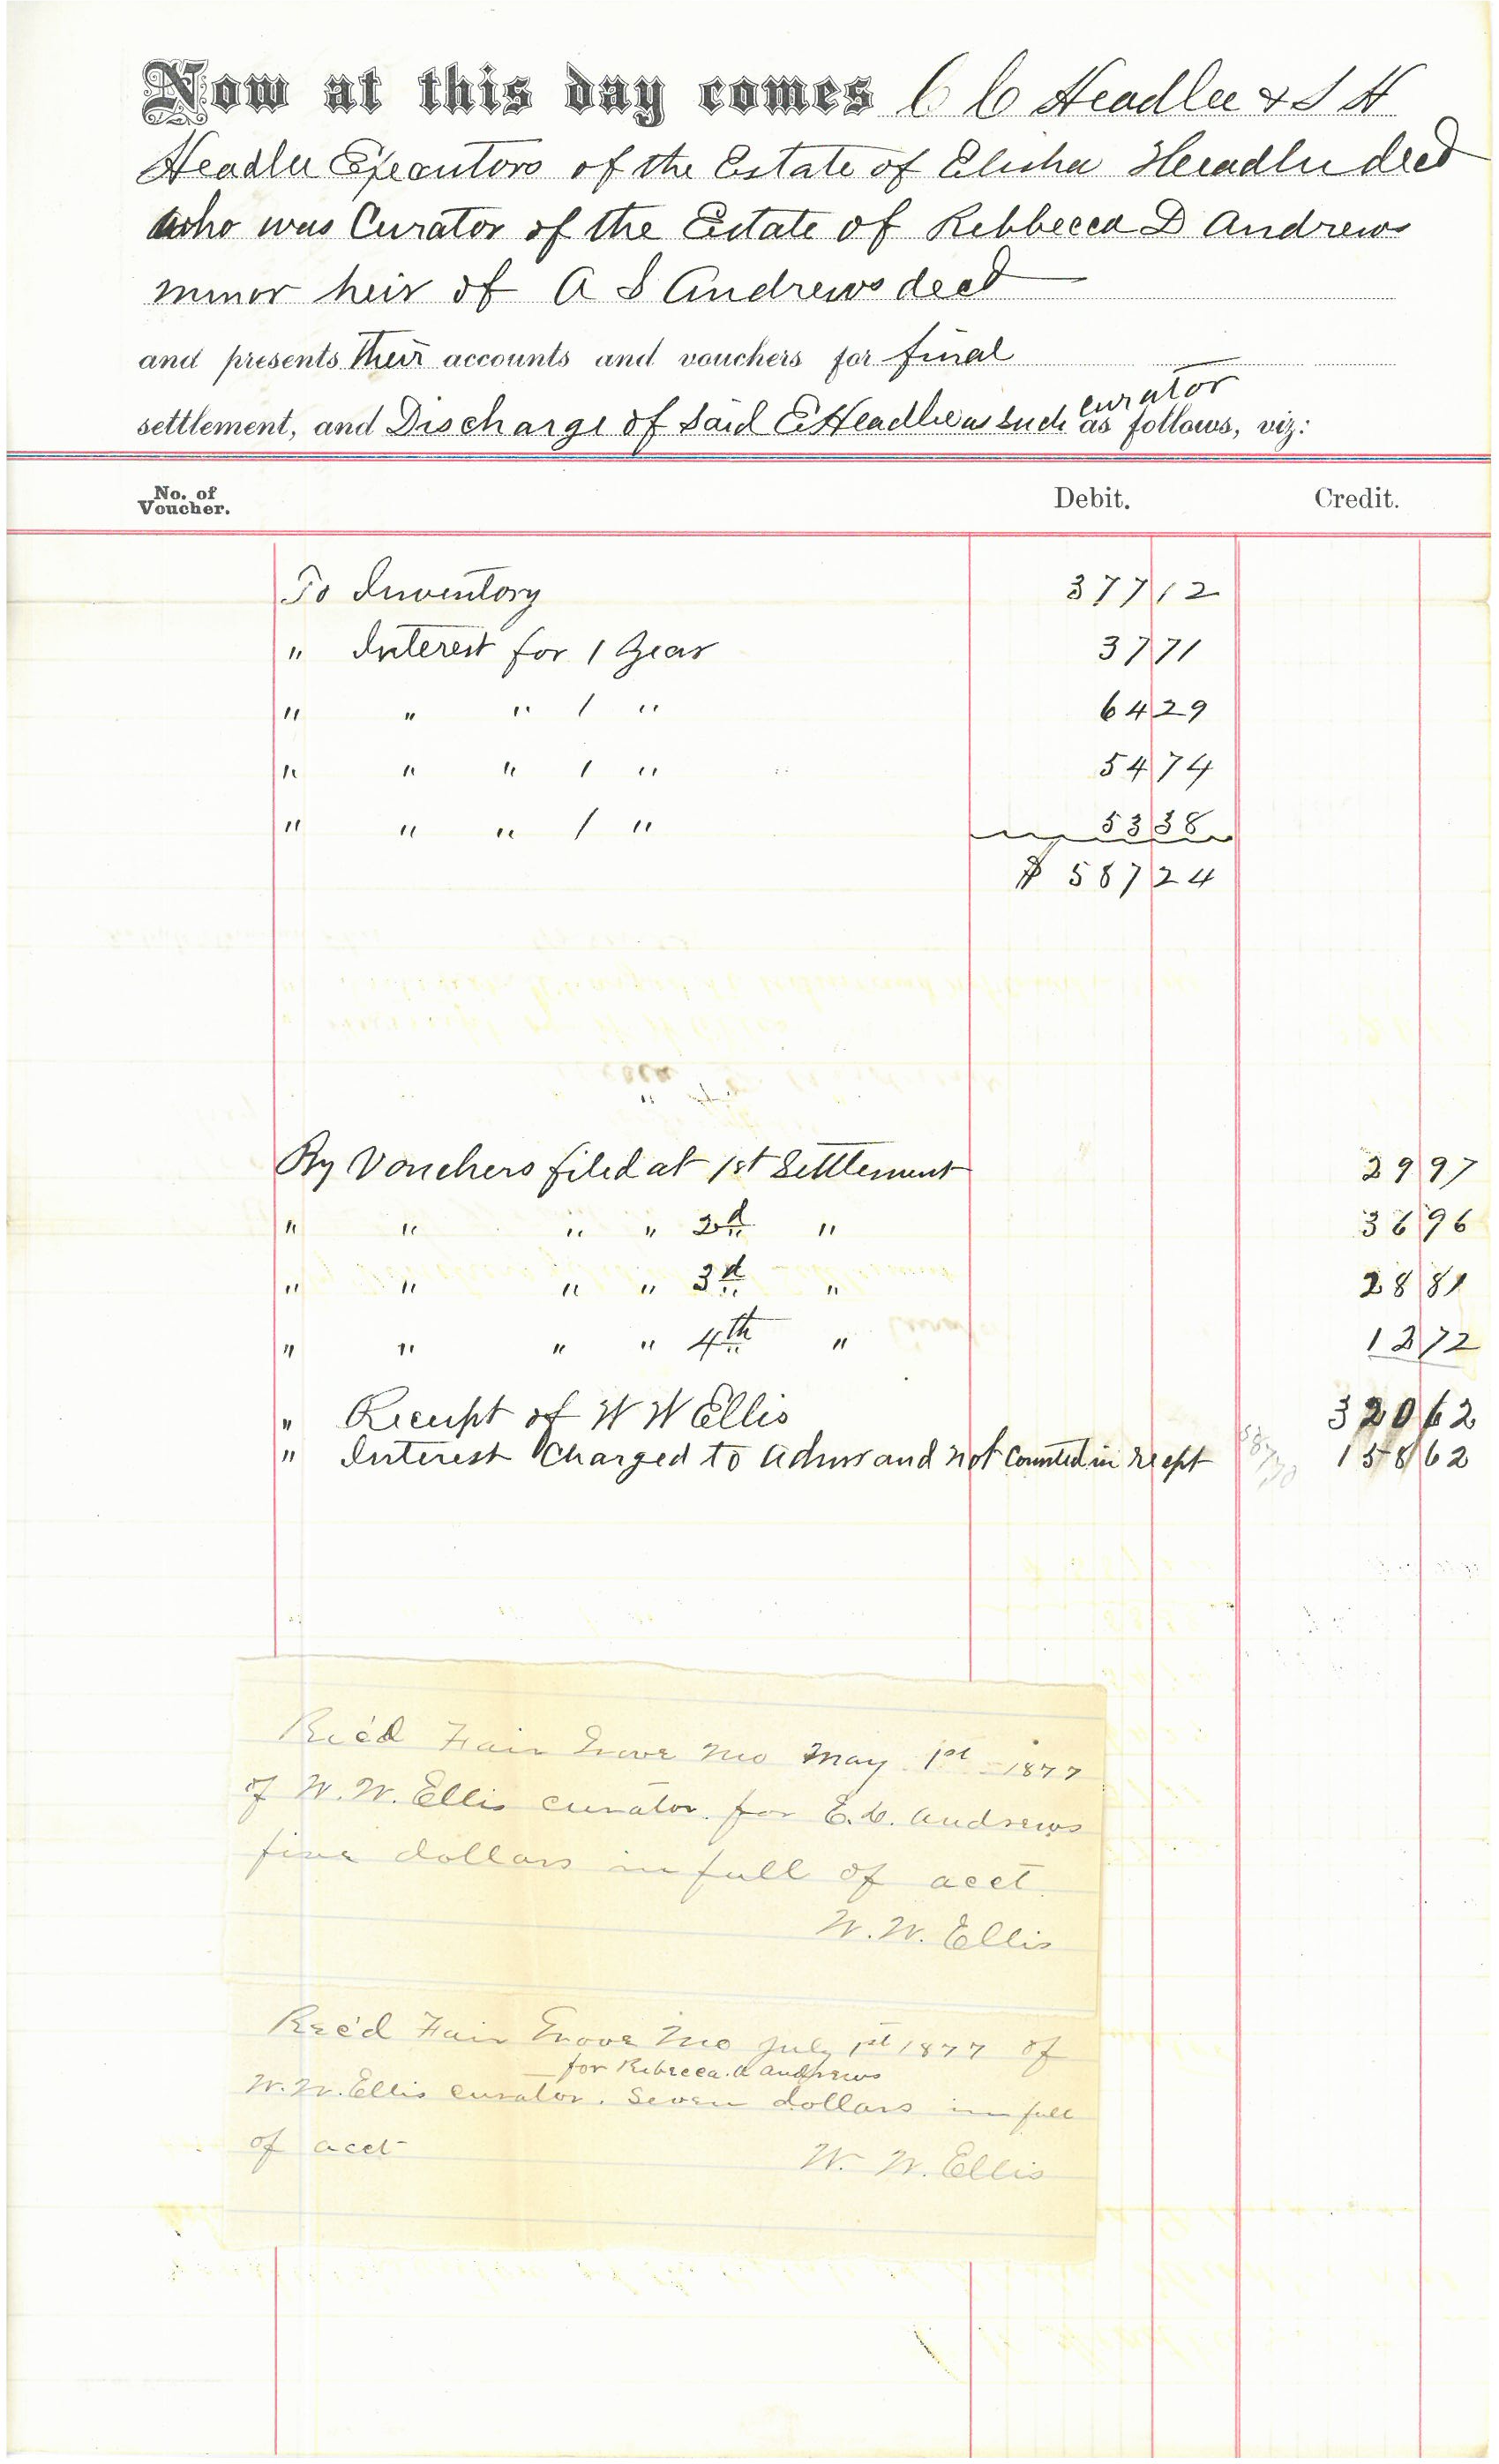 Now at this day comes C C Headlee & S H
Headlee Executors of the Estate of Elisha Headlee decd
who was Curator of the Estate of Rebbecca D Andrews
minor heir of A S Andrews decd
and presents their accounts and vouchers for final
curator
settlement, and Discharge of said E Headlee as such as follows, viz:
No. of Voucher. Debit. Credit.
To Inventory 377 12
" Interest for 1 Year 37 71
" " " 1 " 64 29
" " " 1 " 54 74
" " " 1 " 53 38
$ 587 24
By Vouchers filed at 1st Settlement 29 97
" " " " 2d " 36 96
" " " " 3d " 28 81
" " " " 4th " 12 72
" Receipt of W W Ellis 320 62
" Interest Charged to Admr and not Counted in recept 158 62
Rec'd Fair Grove Mo May 1st 1877
of W. W. Ellis curator for E. C. Andrews
five dollars in full of acct
W. W. Ellis
Rec'd Fair Grove Mo July 1st 1877 of
for Rebecca A Andrews
W. W. Ellis curator. Seven dollars in full
of acct W. W. Ellis